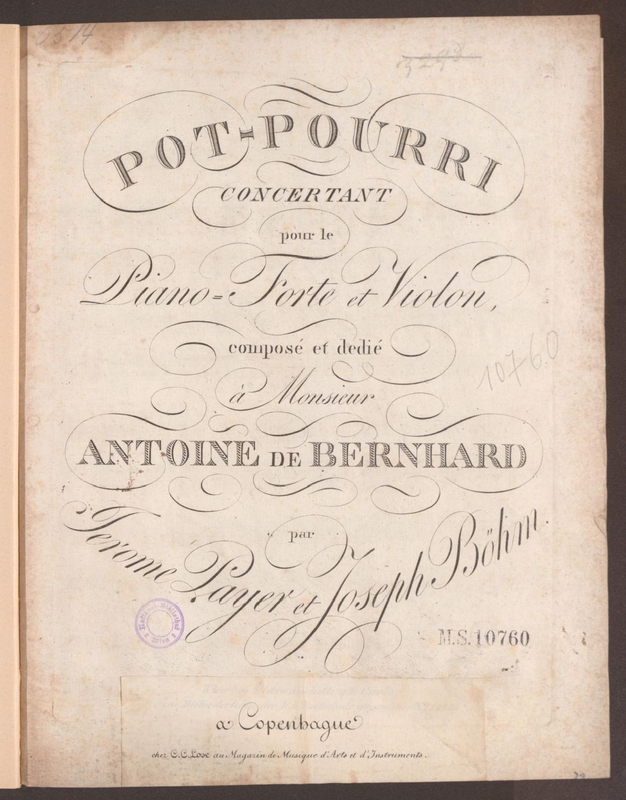 POT=POURRI
CONCERTANT
pour le
Piano=Forte et Violon,
composé et dedié
à Monsieur
ANTOINE DE BERNHARD
par
Jerome Payer et Joseph Böhm.
10760
M.S. 10760
a Copenhague
chez C.C. Lose au Magazin de Musique d'Arts et d'Instruments.